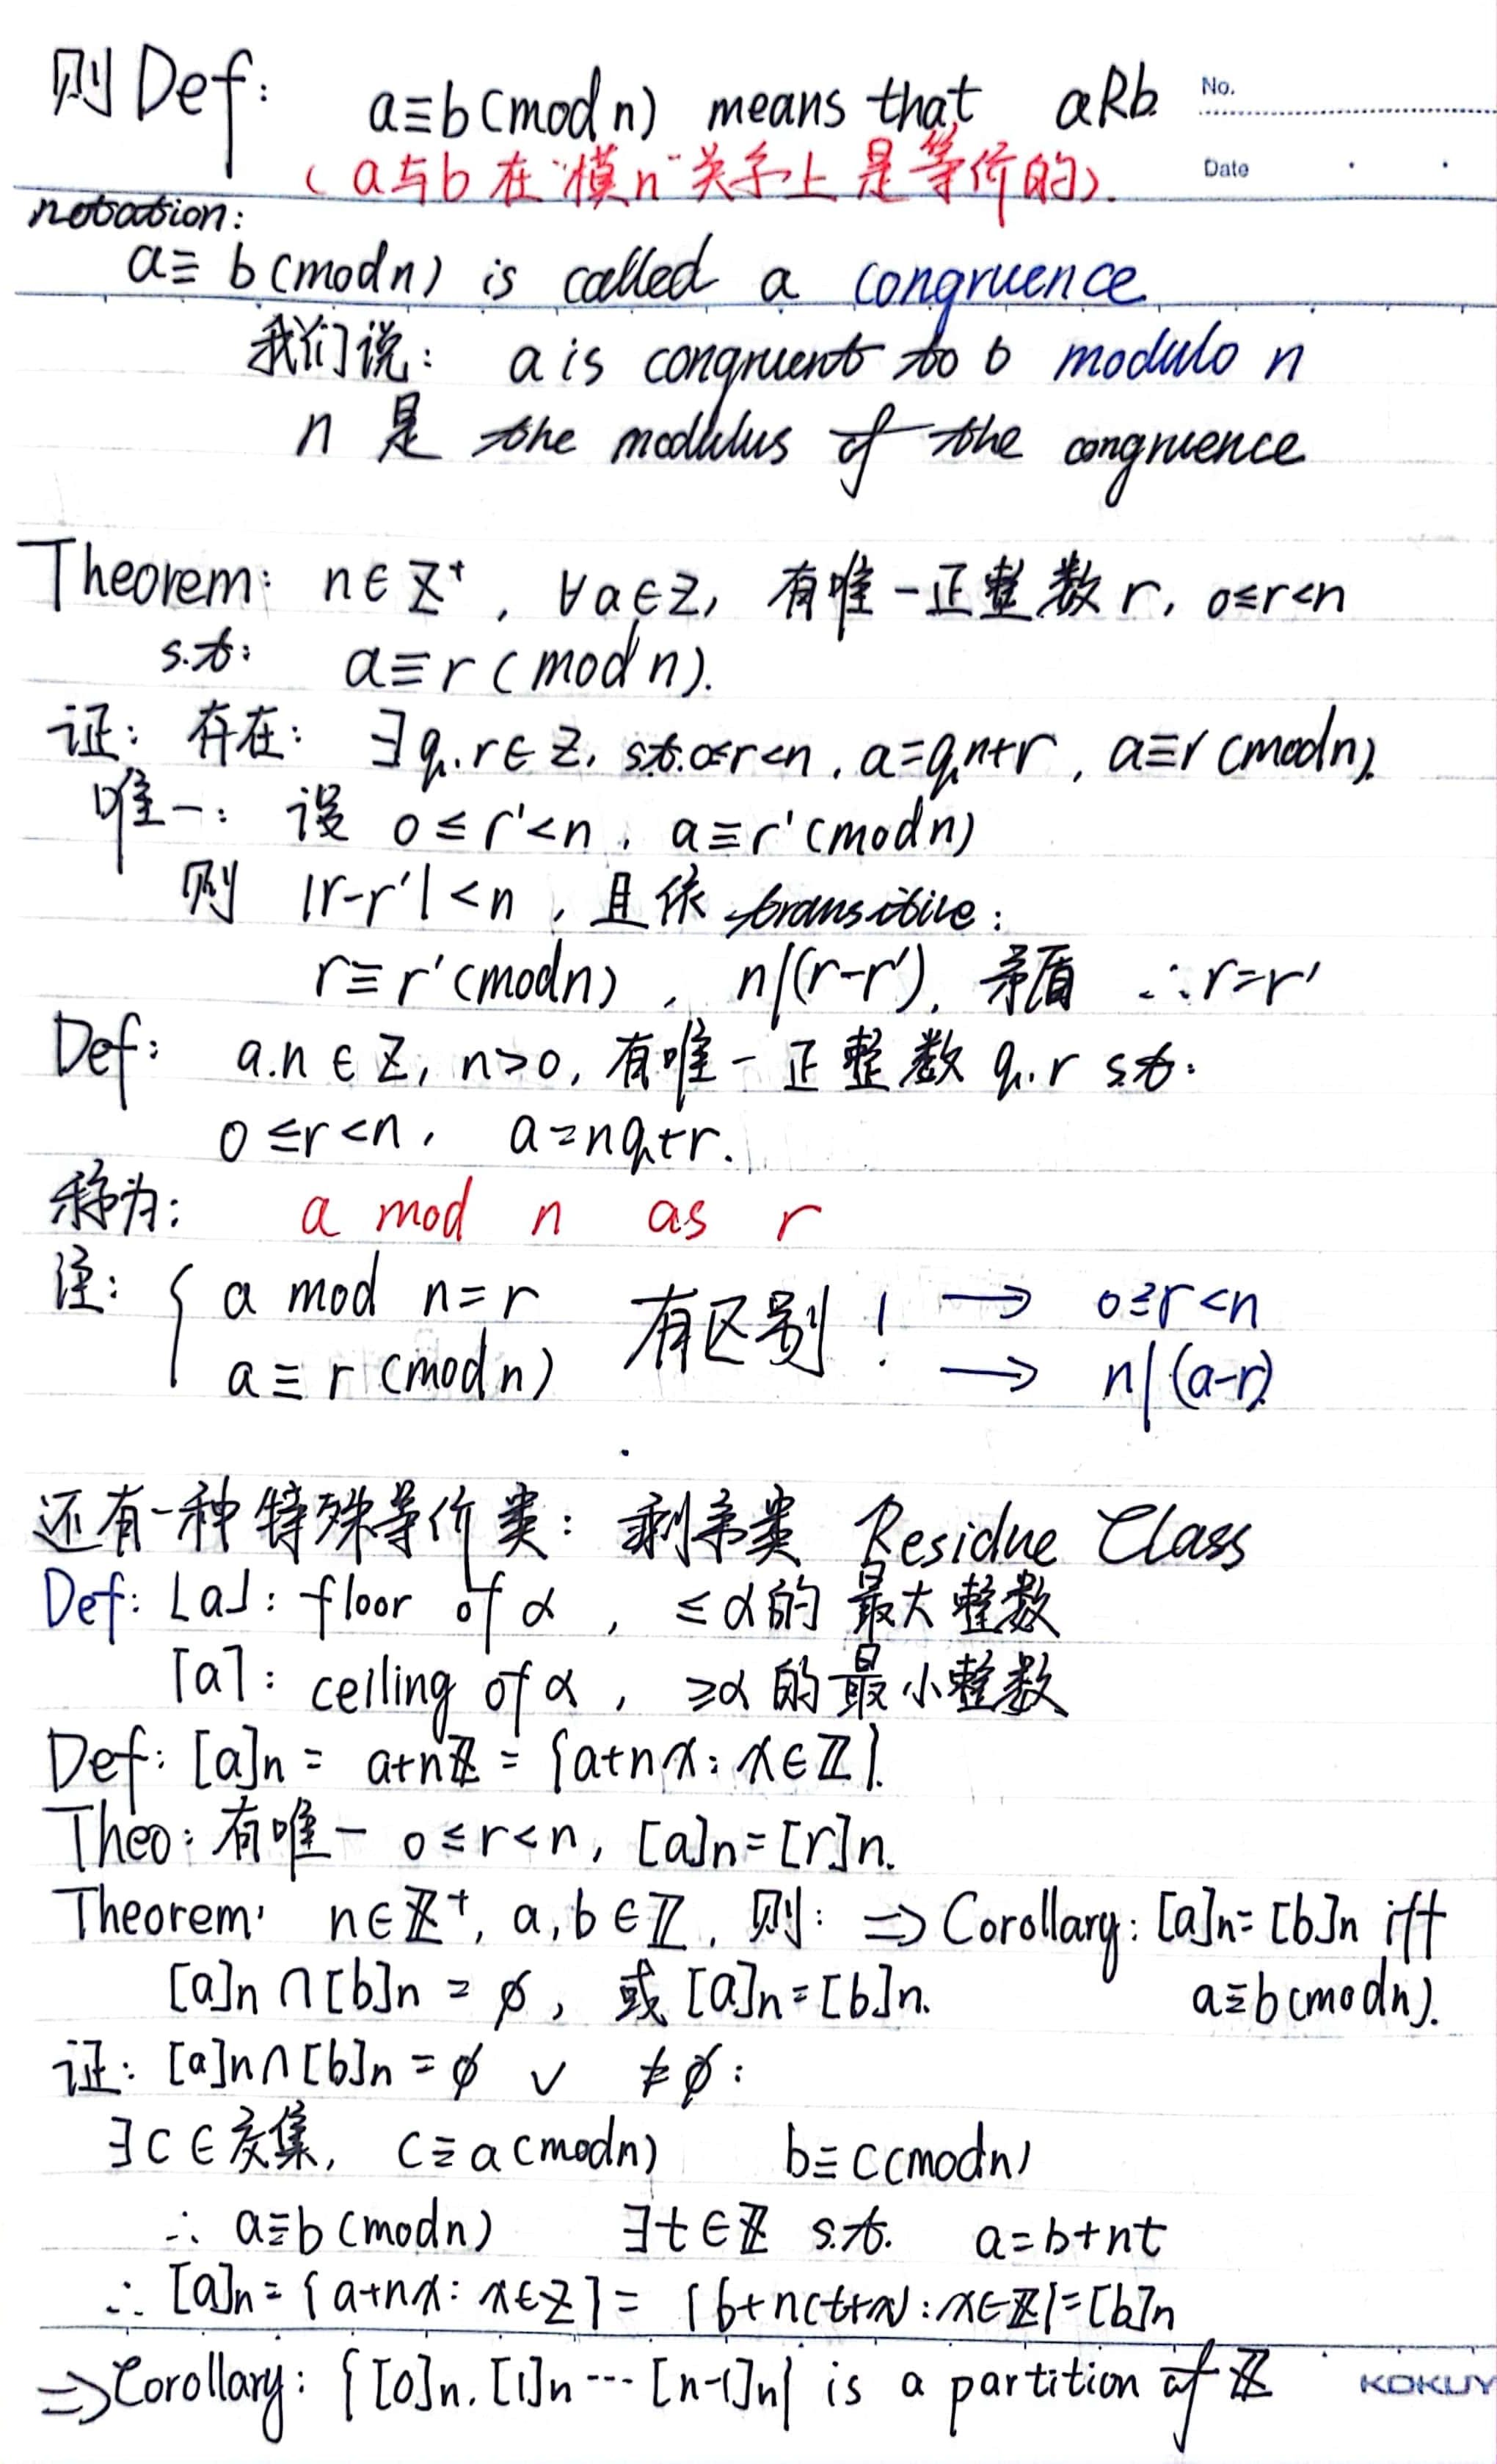 则 Def: a≡b(mod n) means that aRb
No.
(a与b在"模n"关系上是等价的).
Date
notation:
a≡b(mod n) is called a congruence
我们说: a is congruent to b modulo n
n 是 the modulus of the congruence
Theorem: n∈Z⁺, ∀a∈Z, 有唯一正整数r, 0≤r<n
s.t: a≡r(mod n).
证: 存在: ∃q.r∈Z, s.t.0≤r<n, a=qn+r, a≡r(mod n).
唯一: 设 0≤r'<n, a≡r'(mod n)
则 |r-r'|<n, 且依 transitive:
r≡r'(mod n), n|(r-r'), 矛盾 ∴r=r'
Def: a.n∈Z, n>0, 有唯一正整数 q.r s.t.
0≤r<n, a=nq+r.
称为: a mod n as r
注: { a mod n=r 有区别! → 0≤r<n
a≡r(mod n) → n|(a-r)
还有一种特殊等价类: 剩余类 Residue Class
Def: ⌊a⌋: floor of α, ≤α的最大整数
⌈a⌉: ceiling of α, ≥α的最小整数
Def: [a]n = a+nℤ = {a+nx: x∈ℤ}.
Theo: 有唯一 0≤r<n, [a]n=[r]n.
Theorem: n∈ℤ⁺, a,b∈ℤ, 则: ⇒Corollary: [a]n=[b]n iff
[a]n∩[b]n=∅, 或[a]n=[b]n. a≡b(mod n).
证: [a]n∩[b]n=∅ ✓ ≠∅:
∃c∈交集, c≡a(mod n) b≡c(mod n)
∴ a≡b(mod n) ∃t∈ℤ s.t. a=b+nt
∴ [a]n={a+nx: x∈Z}={b+n(t+x): x∈ℤ}=[b]n
⇒Corollary: {[0]n, [1]n ··· [n-1]n} is a partition of ℤ
KOKUY